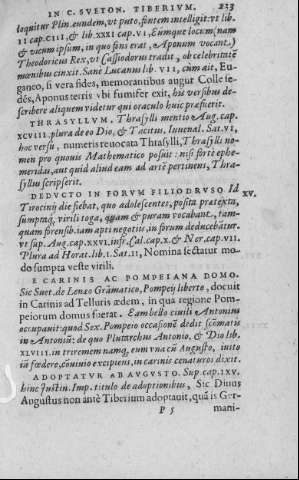 IN C. SVETON. TIBERIVM. 233
loquitur Plin. eundem, vt puto, fontem intelligit: vt lib.
II cap. CIII, & lib. XXXI cap. VI, Eumque locum, nam
& vicum ipsum, in quo fons erat, Aponum vocant.)
Theodoricus Rex, vt Cassiodorus tradit, ob celebritatē
mœnibus cinxit. Sanè Lucanus lib. VII, cùm ait, Eu-
ganeo, si vera fides, memorantibus augur Colle se-
dēs, Aponus terris vbi fumifer exit, his versibus de-
scribere aliquem videtur qui oraculo huic præfuerit.
THRASYLLVM. Thrasylli mentio Aug. cap.
XCVIII. plura de eo Dio, & Tacitus, Iuuenal. Sat. VI,
hoc versu, numeris reuocata Thrasylli, Thrasylli no-
men pro quouis Mathematico posuit: nisi fortè ephe-
meridas, aut quid aliud eam ad artē pertinens, Thra-
syllus scripserit.
DEDVCTO IN FORVM FILIO DRVSO Id XV.
Tirocinij die fiebat, quo adolescentes, posita prætexta,
sumptaq́; virili toga, quam & puram vocabant, tam-
quam forensib. iam apti negotiis, in forum deducebātur.
vt sup. Aug. cap. XXVI. infr. Cal. cap. X. & Ner. cap. VII.
Plura ad Horat. lib. I. Sat. II, Nomina sectatur mo-
do sumpta veste virili.
E CARINIS AC POMPEIANA DOMO.
Sic Suet. de Lenæo Grāmatico, Pompeij liberto, docuit
in Carinis ad Telluris ædem, in qua regione Pom-
peiorum domus fuerat. Eam bello ciuili Antonius
occupauit: quod Sex. Pompeio occasionē dedit scōmatis
in Antoniū: de quo Plutarchus Antonio, & Dio lib.
XLVIII. in triremem namq́, eum vna cū Augusto, icto
iā fœdere, cōuiuio excipiens, in carinis cenaturos dixit.
ADOPTATVR AB AVGVSTO. Sup. cap. LXV.
hinc Justin. Imp. titulo de adoptionibus, Sic Diuus
Augustus non antè Tiberium adoptauit, quā is Ger-
P 5 mani-